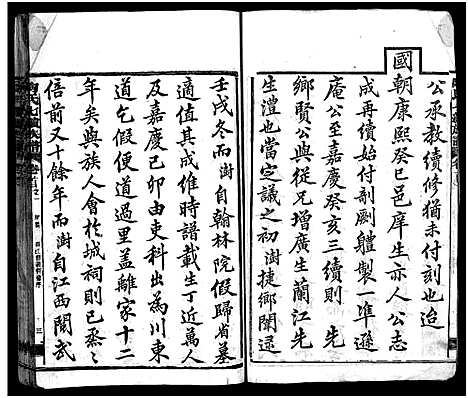 公承教續修猶未付刻也迨
國朝康熙癸巳邑庠生亦人公志
成再續始付剞劂體製一準遜
庵公至嘉慶癸亥三續則 先
鄉賢公與增廣生蘭江先
生澧也當定議之初澍捷鄉闈逮
壬戌冬而澍自翰林院假歸省墓
適值其成維時族人生丁近萬人
及嘉慶己卯由吏科出為川東
道乞假便道過里蓋離家十二
年矣與族人會於城祠則已烝烝
倍前又十餘年而澍自江西閱武